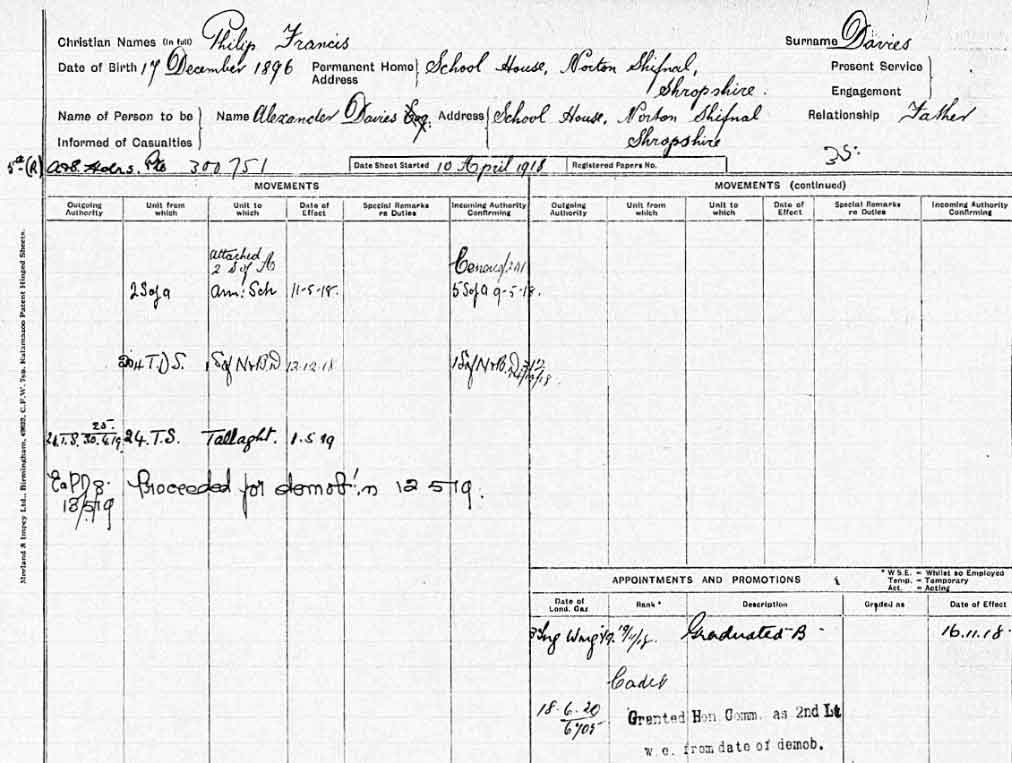 Christian Names (in full) Philip Francis Surname Davies
Date of Birth 17 December 1896 Permanent Home Address School House, Norton Shifnal, Shropshire. Present Service Engagement
Name of Person to be Informed of Casualties Name Alexander Davies Esq. Address School House, Norton Shifnal Shropshire Relationship Father
35.
5th (R) A&S. Hdrs. Pte 300751 Date Sheet Started 10 April 1918 Registered Papers No.
MOVEMENTS MOVEMENTS (continued)
Outgoing Authority Unit from which Unit to which Date of Effect Special Remarks re Duties Incoming Authority Confirming Outgoing Authority Unit from which Unit to which Date of Effect Special Remarks re Duties Incoming Authority Confirming
attached
2 S of A
2 S of A Arm: Sch 11-5-18. 5 S of A 9-5-18.
204 T.D.S. 1 S of N&B.D 12.12.18 1 S of N&B.D
25.
30.4.19 24.T.S. Tallaght. 1.5.19
Proceeded for demob'n 12 5 19.
13/5/19
Morland & Impey Ltd., Birmingham, C.F.W. Top. Kalamazoo Patent Hinged Sheets.
APPOINTMENTS AND PROMOTIONS
* W.S.E. = Whilst so Employed
Temp. = Temporary
Act. = Acting
Date of Lond. Gaz Rank* Description Graded as Date of Effect
Graduated B 16.11.18
Cadet
18.6.20
6705
Granted Hon. Comm. as 2nd Lt
w.e. from date of demob.